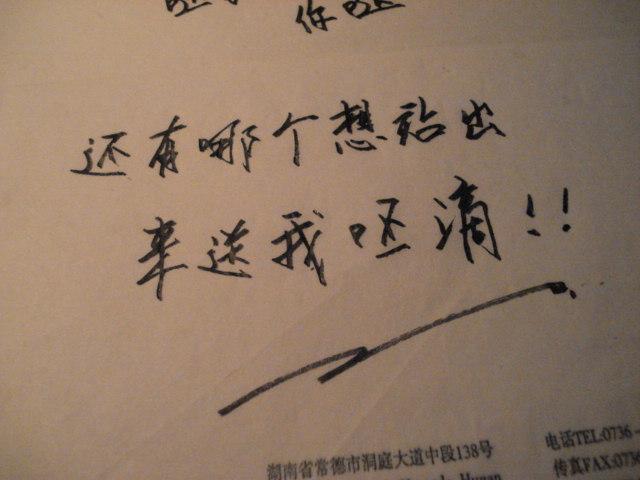 你
还有哪个想站出
来送我呕滴!!
湖南省常德市洞庭大道中段138号
电话TEL:0736-
传真FAX:0736
Hunan